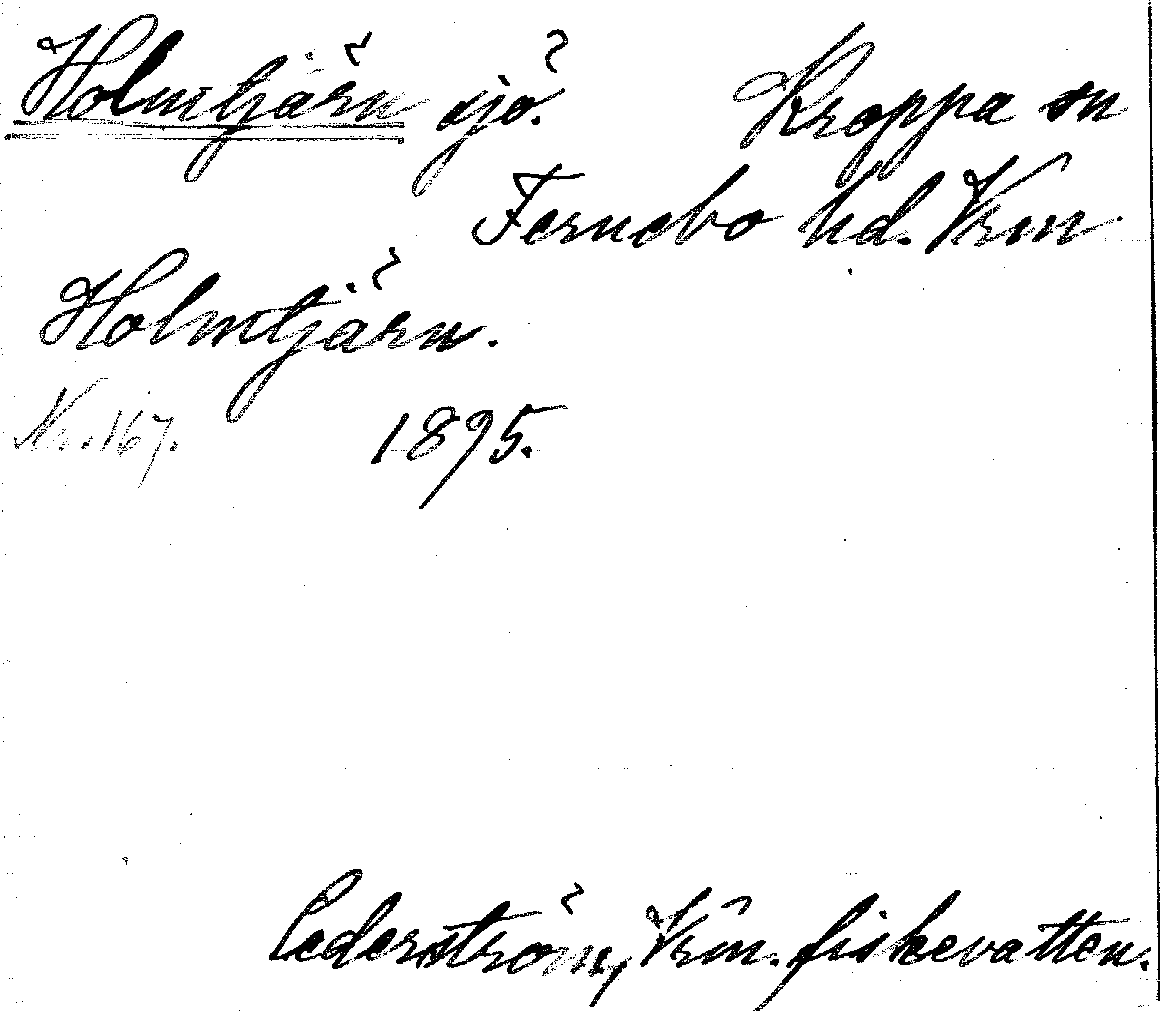 Holmtjärn sjö. Kroppa sn
Fernebo hd. Vrm
Holmtjärn.
Nr. 167. 1895.
Cederström, Vrm. fiskevatten.